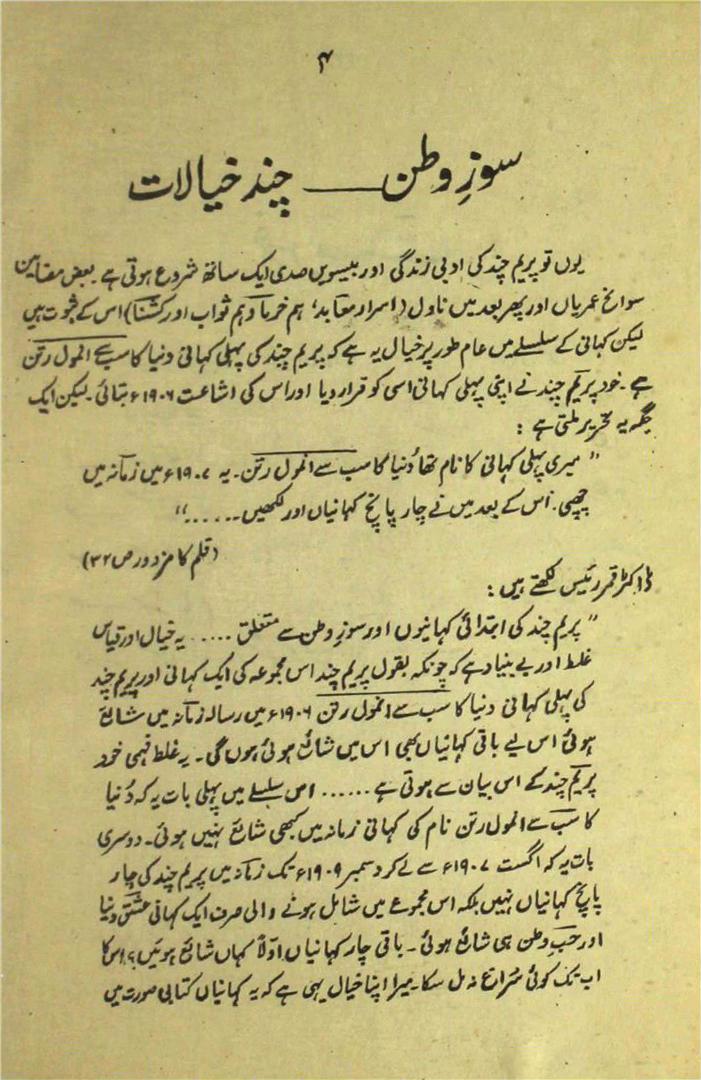 ۴
سوزِ وطن —— چند خیالات
یوں تو پریم چند کی ادبی زندگی اور بیسویں صدی ایک ساتھ شروع ہوتی ہے۔ بعض مضامین
سوانح عمریاں اور پھر بعد میں ناول (اسرار معابد، ہم خرما وہم ثواب اور کشنا) اس کے ثبوت ہیں
لیکن کہانی کے سلسلے میں عام طور پر خیال یہ ہے کہ پریم چند کی پہلی کہانی دنیا کا سب سے انمول رتن
ہے۔ خود پریم چند نے اپنی پہلی کہانی اسی کو قرار دیا اور اس کی اشاعت ۱۹۰۶ء بتائی۔ لیکن ایک
جگہ یہ تحریر ملتی ہے :
" میری پہلی کہانی کا نام تھا دُنیا کا سب سے انمول رتن۔ یہ ۱۹۰۷ء میں زمانہ میں
چھپی۔ اس کے بعد میں نے چار پانچ کہانیاں اور لکھیں ......"
(قلم کا مزدور ص ۳۲)
ڈاکٹر قمر رئیس لکھتے ہیں :
" پریم چند کی ابتدائی کہانیوں اور سوزِ وطن سے متعلق ..... یہ خیال اور قیاس
غلط اور بے بنیاد ہے کہ چونکہ بقول پریم چند اس مجموعہ کی ایک کہانی اور پریم چند
کی پہلی کہانی دنیا کا سب سے انمول رتن ۱۹۰۶ء میں رسالہ زمانہ میں شائع
ہوئی اس لیے باقی کہانیاں بھی اس میں شائع ہوئی ہوں گی۔ یہ غلط فہمی خود
پریم چند کے اس بیان سے ہوتی ہے ...... اس سلسلے میں پہلی بات یہ کہ دُنیا
کا سب سے انمول رتن نام کی کہانی زمانہ میں کبھی شائع نہیں ہوئی۔ دوسری
بات یہ کہ اگست ۱۹۰۷ء سے لے کر دسمبر ۱۹۰۹ء تک زمانہ میں پریم چند کی چار
پانچ کہانیاں نہیں بلکہ اس مجموعے میں شامل ہونے والی صرف ایک کہانی عشق دنیا
اور حب وطن ہی شائع ہوئی۔ باقی چار کہانیاں اوّلاً کہاں شائع ہوئیں؟ اس کا
اب تک کوئی سُراغ نہ مل سکا۔ میرا اپنا خیال یہی ہے کہ یہ کہانیاں کتابی صورت میں